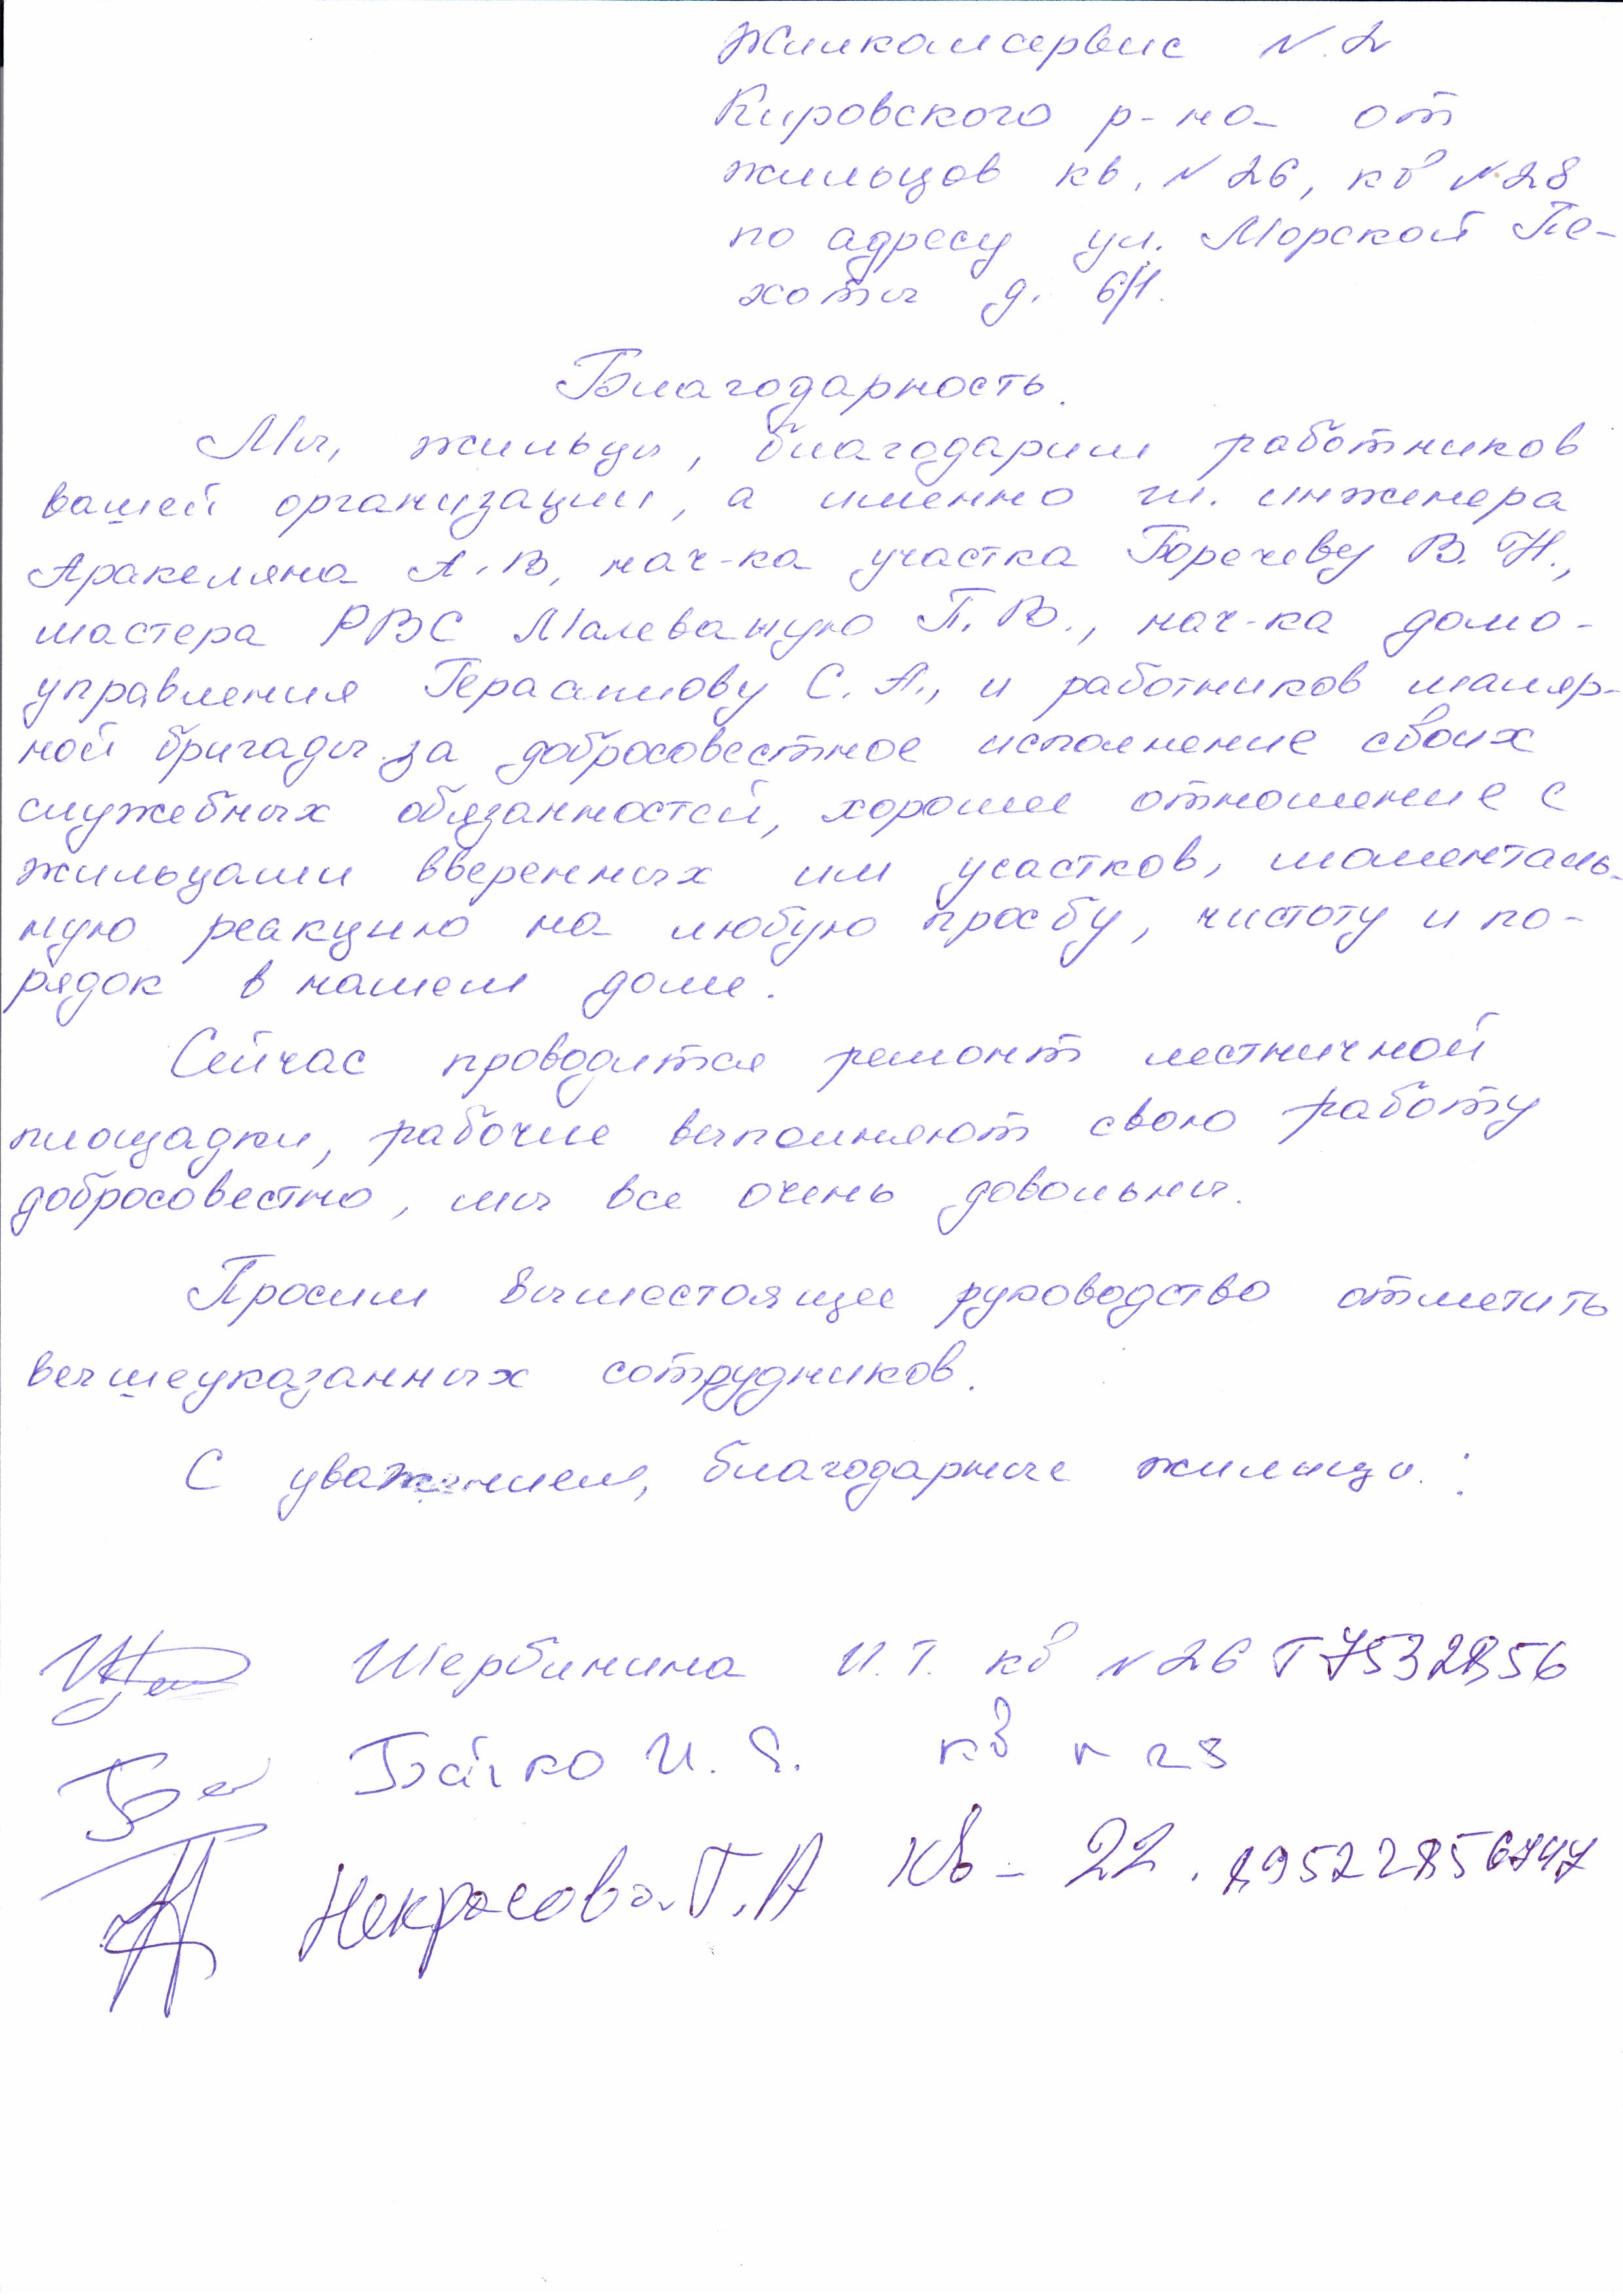 Жилкомсервис N.2
Кировского р-на от
жильцов кв. N 26, кв N 28
по адресу ул. Морской Пе-
хоты д. 6/1.
Благодарность.
Мы, жильцы, благодарим работников
вашей организации, а именно гл. инженера
Аракеляна А.В, нач-ка участка Боречеву В.Н.,
мастера РВС Малеваную П.В., нач-ка домо-
управления Герасимову С.А., и работников маляр-
ной бригады за добросовестное исполнение своих
служебных обязанностей, хорошее отношение с
жильцами вверенных им участков, моменталь-
ную реакцию на любую просбу, чистоту и по-
рядок в нашем доме.
Сейчас проводится ремонт лестничной
площадки, рабочие выполняют свою работу
добросовестно, мы все очень довольны.
Просим вышестоящее руководство отметить
вышеуказанных сотрудников.
С уважением, благодарные жильцы:
Щербинина И.Т. кв N 26 Т 7532856
Бойко И. Я. кв N 28
Некрасова Г.А кв - 22.